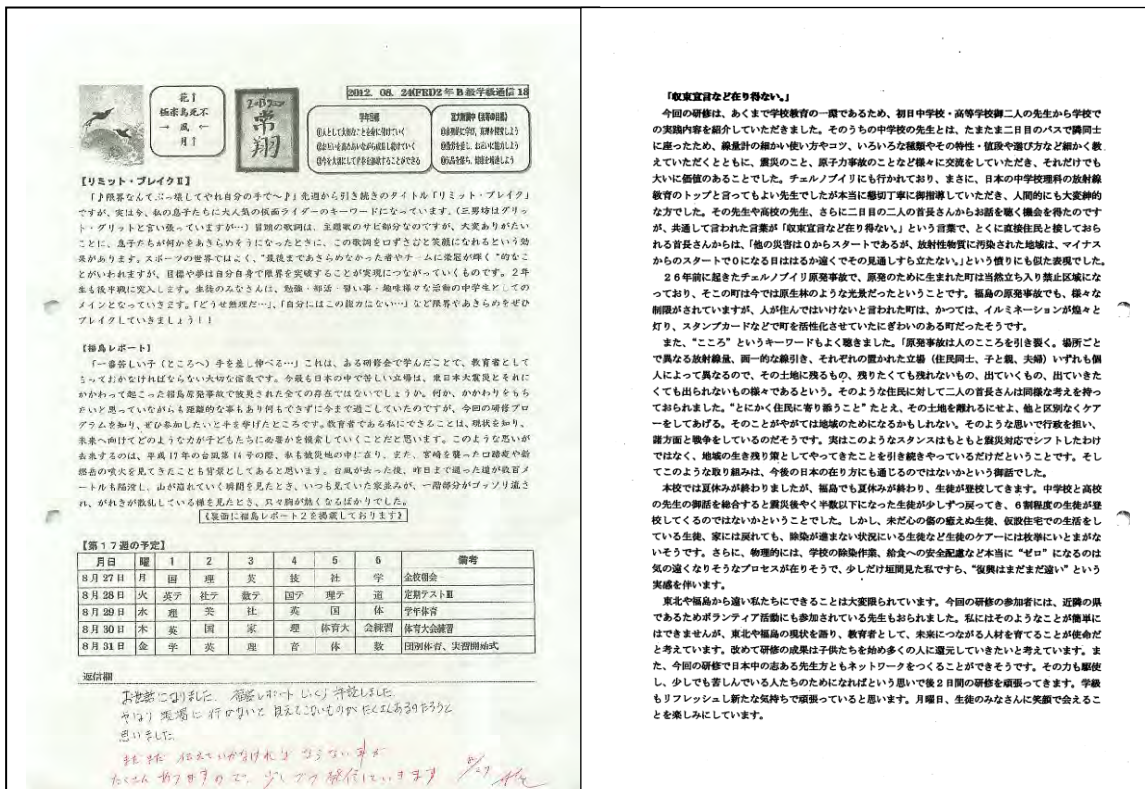 花 I
極楽鳥死不
→ 風 ←
月 I
常翔
2012. 08. 24(FRI)2年B組学級通信 18
学年目標
①人として大切なことを身に付けていく
②お互いを高めあいながら成長し続けていく
③今を大切にして夢を追求することができる
【リミット・ブレイクⅡ】
「♪限界なんてぶっ壊してやれ自分の手で～♪」先週から引き続きのタイトル「リミット・ブレイク」
ですが、実は今、私の息子たちに大人気の仮面ライダーのキーワードになっています。(三男坊はグリッ
ト・グリットと言い張っていますが…)冒頭の歌詞は、主題歌のサビ部分なのですが、大変ありがたい
ことに、息子たちが何かをあきらめそうになったときに、この歌詞を口ずさむと笑顔になれるという効
果があります。スポーツの世界ではよく、"最後まであきらめなかった者やチームに栄冠が輝く"的なこ
とがいわれますが、目標や夢は自分自身で限界を突破することが実現につながっていくものです。2年
生も後半戦に突入します。生徒のみなさんは、勉強・部活・習い事・趣味様々な活動の中学生としての
メインとなっていきます。「どうせ無理だ…」、「自分にはこの能力はない…」など限界やあきらめをぜひ
ブレイクしていきましょう!!
【福島レポート】
「一番苦しい子（ところへ）手を差し伸べる…」これは、ある研修会で学んだことで、教育者として
もっておかなければならない大切な信条です。今最も日本の中で苦しい立場は、東日本大震災とそれに
かかわって起こった福島原発事故で被災された全ての存在ではないでしょうか。何か、かかわりをもち
たいと思っていながらも距離的な事もあり何もできずに今まで過ごしていたのですが、今回の研修プロ
グラムを知り、ぜひ参加したいと手を挙げたところです。教育者である私にできることは、現状を知り、
未来へ向けてどのような力が子どもたちに必要かを模索していくことだと思います。このような思いが
去来するのは、平成17年の台風第14号の際、私も被災地の中に在り、また、宮崎を襲った口蹄疫や新
燃岳の噴火を見てきたことも背景としてあると思います。台風が去った後、昨日まで通った道が数百メ
ートルも陥没し、山が崩れていく瞬間を見たとき、いつも見ていた家並みが、一階部分がゴッソリ流さ
れ、がれきが散乱している様を見たとき、只々胸が熱くなるばかりでした。
《裏面に福島レポート2を掲載しております》
【第17週の予定】
月日 曜 1 2 3 4 5 6 備考
8月27日 月 国 理 英 技 社 学 全校朝会
8月28日 火 英テ 社テ 数テ 国テ 理テ 道 定期テストⅢ
8月29日 水 理 美 社 英 国 体 学年体育
8月30日 木 英 国 家 理 体育大 会練習 体育大会練習
8月31日 金 学 英 理 音 体 数 団別体育、実習開始式
返信欄
お世話になりました。福島レポートじっくり拝読しました。
やはり 現場に行かないと 見えてこないものが たくさんあるのだろうと
思いました。
まだまだ 伝えていかなければ ならない事が
たくさん ありますので、少しずつ 発信していきます 8/29
「収束宣言など在り得ない。」
今回の研修は、あくまで学校教育の一環であるため、初日中学校・高等学校御二人の先生から学校で
の実践内容を紹介していただきました。そのうちの中学校の先生とは、たまたま二日目のバスで隣同士
に座ったため、線量計の細かい使い方やコツ、いろいろな種類やその特性・値段や選び方など細かく教
えていただくとともに、震災のこと、原子力事故のことなど様々に交流をしていただき、それだけでも
大いに価値のあることでした。チェルノブイリにも行かれており、まさに、日本の中学校理科の放射線
教育のトップと言ってもよい先生でしたが本当に懇切丁寧に御指導していただき、人間的にも大変紳的
な方でした。その先生や高校の先生、さらに二日目の二人の首長さんからお話を聴く機会を得たのです
が、共通して言われた言葉が「収束宣言など在り得ない。」という言葉で、とくに直接住民と接しておら
れる首長さんからは、「他の災害は0からスタートであるが、放射性物質に汚染された地域は、マイナス
からのスタートで0になる日ははるか遠くでその見通しすら立たない。」という憤りにも似た表現でした。
26年前に起きたチェルノブイリ原発事故で、原発のために生まれた町は当然立ち入り禁止区域にな
っており、そこの町は今では原生林のような光景だったということです。福島の原発事故でも、様々な
制限がされていますが、人が住んではいけないと言われた町は、かつては、イルミネーションが煌々と
灯り、スタンプカードなどで町を活性化させていたにぎわいのある町だったそうです。
また、"こころ"というキーワードもよく聴きました。「原発事故は人のこころを引き裂く。場所ごと
で異なる放射線量、画一的な線引き、それぞれの置かれた立場（住民同士、子と親、夫婦）いずれも個
人によって異なるので、その土地に残るもの、残りたくても残れないもの、出ていくもの、出ていきた
くても出られないもの様々であるという。そのような住民に対して二人の首長さんは同様な考えを持っ
ておられました。"とにかく住民に寄り添うこと"たとえ、その土地を離れるにせよ、他と区別なくケア
ーをしてあげる。そのことがやがては地域のためになるかもしれない。そのような思いで行政を担い、
諸方面と戦争をしているのだそうです。実はこのようなスタンスはもともと震災対応でシフトしたわけ
ではなく、地域の生き残り策としてやってきたことを引き続きやっているだけだということです。そし
てこのような取り組みは、今後の日本の在り方にも通じるのではないかという御話でした。
本校では夏休みが終わりましたが、福島でも夏休みが終わり、生徒が登校してきます。中学校と高校
の先生の御話を総合すると震災後やく半数以下になった生徒が少しずつ戻ってき、6割程度の生徒が登
校してくるのではないかということでした。しかし、未だ心の傷の癒えぬ生徒、仮設住宅での生活をし
ている生徒、家には戻れても、除染が進まない状況にいる生徒など生徒のケアーには枚挙にいとまがな
いそうです。さらに、物理的には、学校の除染作業、給食への安全配慮など本当に"ゼロ"になるのは
気の遠くなりそうなプロセスが在りそうで、少しだけ垣間見た私ですら、"復興はまだまだ遠い"という
実感を伴います。
東北や福島から遠い私たちにできることは大変限られています。今回の研修の参加者には、近隣の県
であるためボランティア活動にも参加されている先生もおられました。私にはそのようなことが簡単に
はできませんが、東北や福島の現状を語り、教育者として、未来につながる人材を育てることが使命だ
と考えています。改めて研修の成果は子供たちを始め多くの人に還元していきたいと考えています。ま
た、今回の研修で日本中の志ある先生方ともネットワークをつくることができそうです。その力も駆使
し、少しでも苦しんでいる人たちのためになればという思いで後2日間の研修を頑張ってきます。学級
もリフレッシュし新たな気持ちで頑張っていると思います。月曜日、生徒のみなさんに笑顔で会えるこ
とを楽しみにしています。